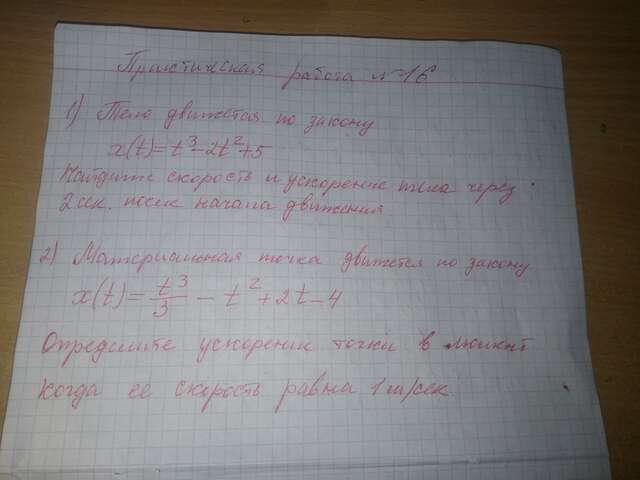 Практическая работа №16
1) Тело движется по закону
x(t)=t³-2t²+5
Найдите скорость и ускорение тела через
2 сек. после начала движения
2) Материальная точка движется по закону
x(t)= t³/3 - t² + 2t - 4
Определите ускорение точки в момент
когда ее скорость равна 1 м/сек